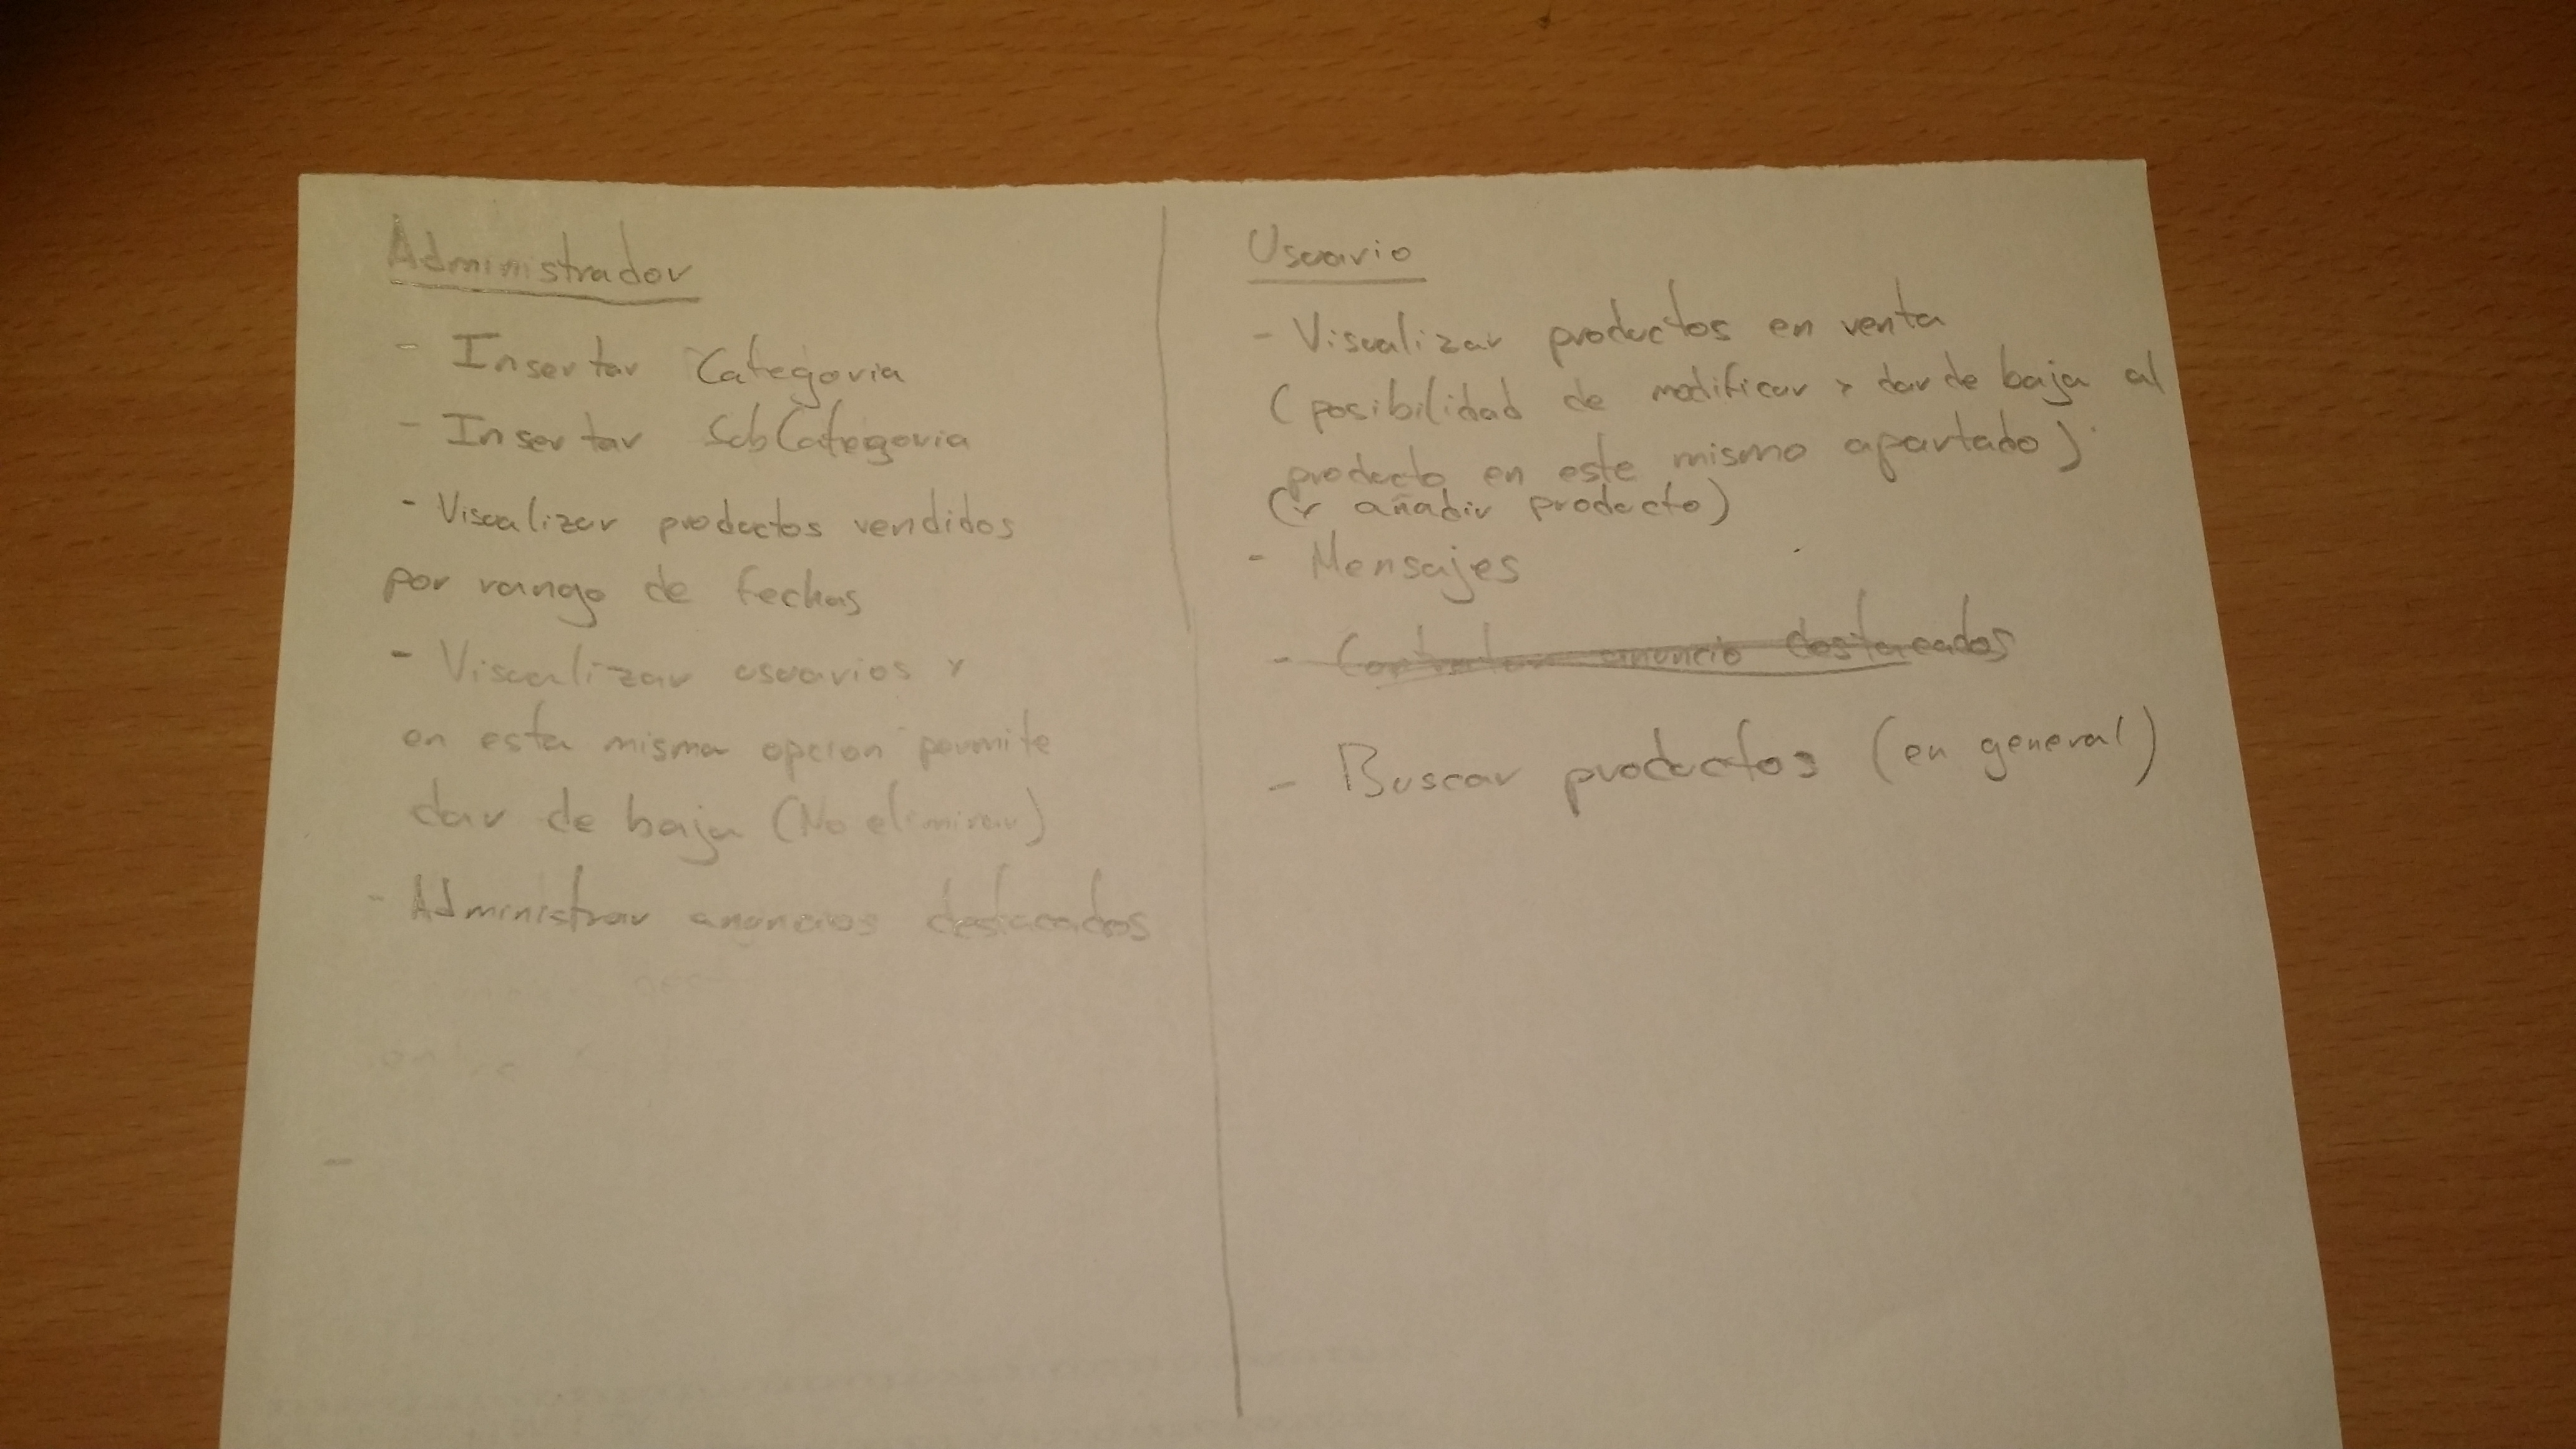 Administrador
- Insertar Categoria
- Insertar SubCategoria
- Visualizar productos vendidos
por rango de fechas
- Visualizar usuarios y
en esta misma opcion permite
dar de baja (No eliminar)
- Administrar anuncios destacados
-
Usuario
- Visualizar productos en venta
(posibilidad de modificar y dar de baja al
producto en este mismo apartado)
(y añadir producto)
- Mensajes
- Contratar anuncio destacados
- Buscar productos (en general)